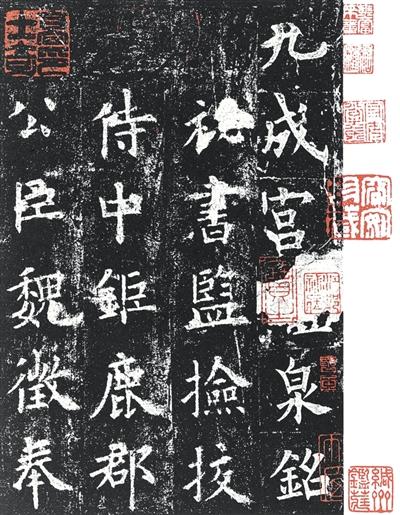 九成宮泉銘
祕書監撿挍
侍中鉅鹿郡
公臣魏徵奉